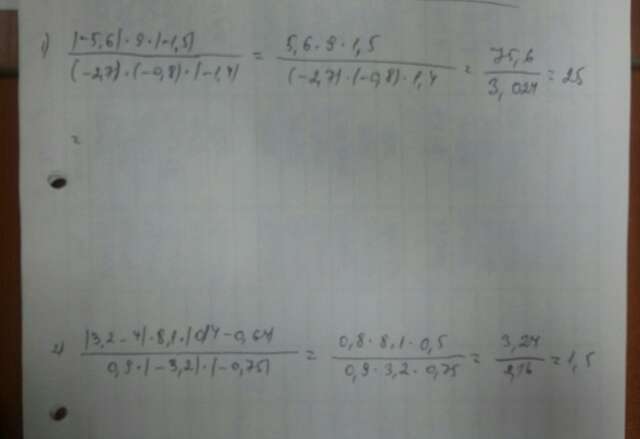 1) |-5,6| · 9 · |-1,5| / (-2,7) · (-0,8) · |-1,4| = 5,6 · 9 · 1,5 / (-2,7) · (-0,8) · 1,4 = 75,6 / 3,024 = 25
=
2) |3,2-4| · 8,1 · / 0,9 · |-3,2| · |-0,75| = 0,8 · 8,1 · 0,5 / 0,9 · 3,2 · 0,75 = 3,24 / 2,16 = 1,5